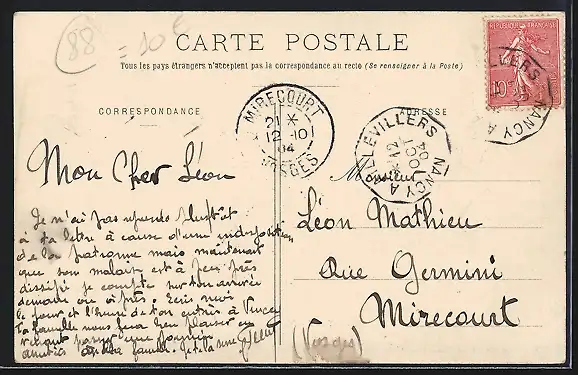 88 = 10€
CARTE POSTALE
Tous les pays étrangers n'acceptent pas la correspondance au recto (Se renseigner à la Poste)
RÉPUBLIQUE FRANÇAISE
10c
CORRESPONDANCE
ADRESSE
MIRECOURT
21 *
12 -10
04
VOSGES
AILLEVILLERS
NANCY A
12
OCT
04
Mon Cher Léon
Je n'ai pas répondu plustôt
à ta lettre à cause d'une indisposition
de la patronne mais maintenant
que son malaise est à peu près
dissipé je compte sur ton arrivée
demain ou après. Ecris moi
le jour et l'heure de ton
la famille nous fera bien plaisir en
venant passer une journée
amitiés famille
Monsieur
Léon Mathieu
Rue Germini
Mirecourt
(Vosges)